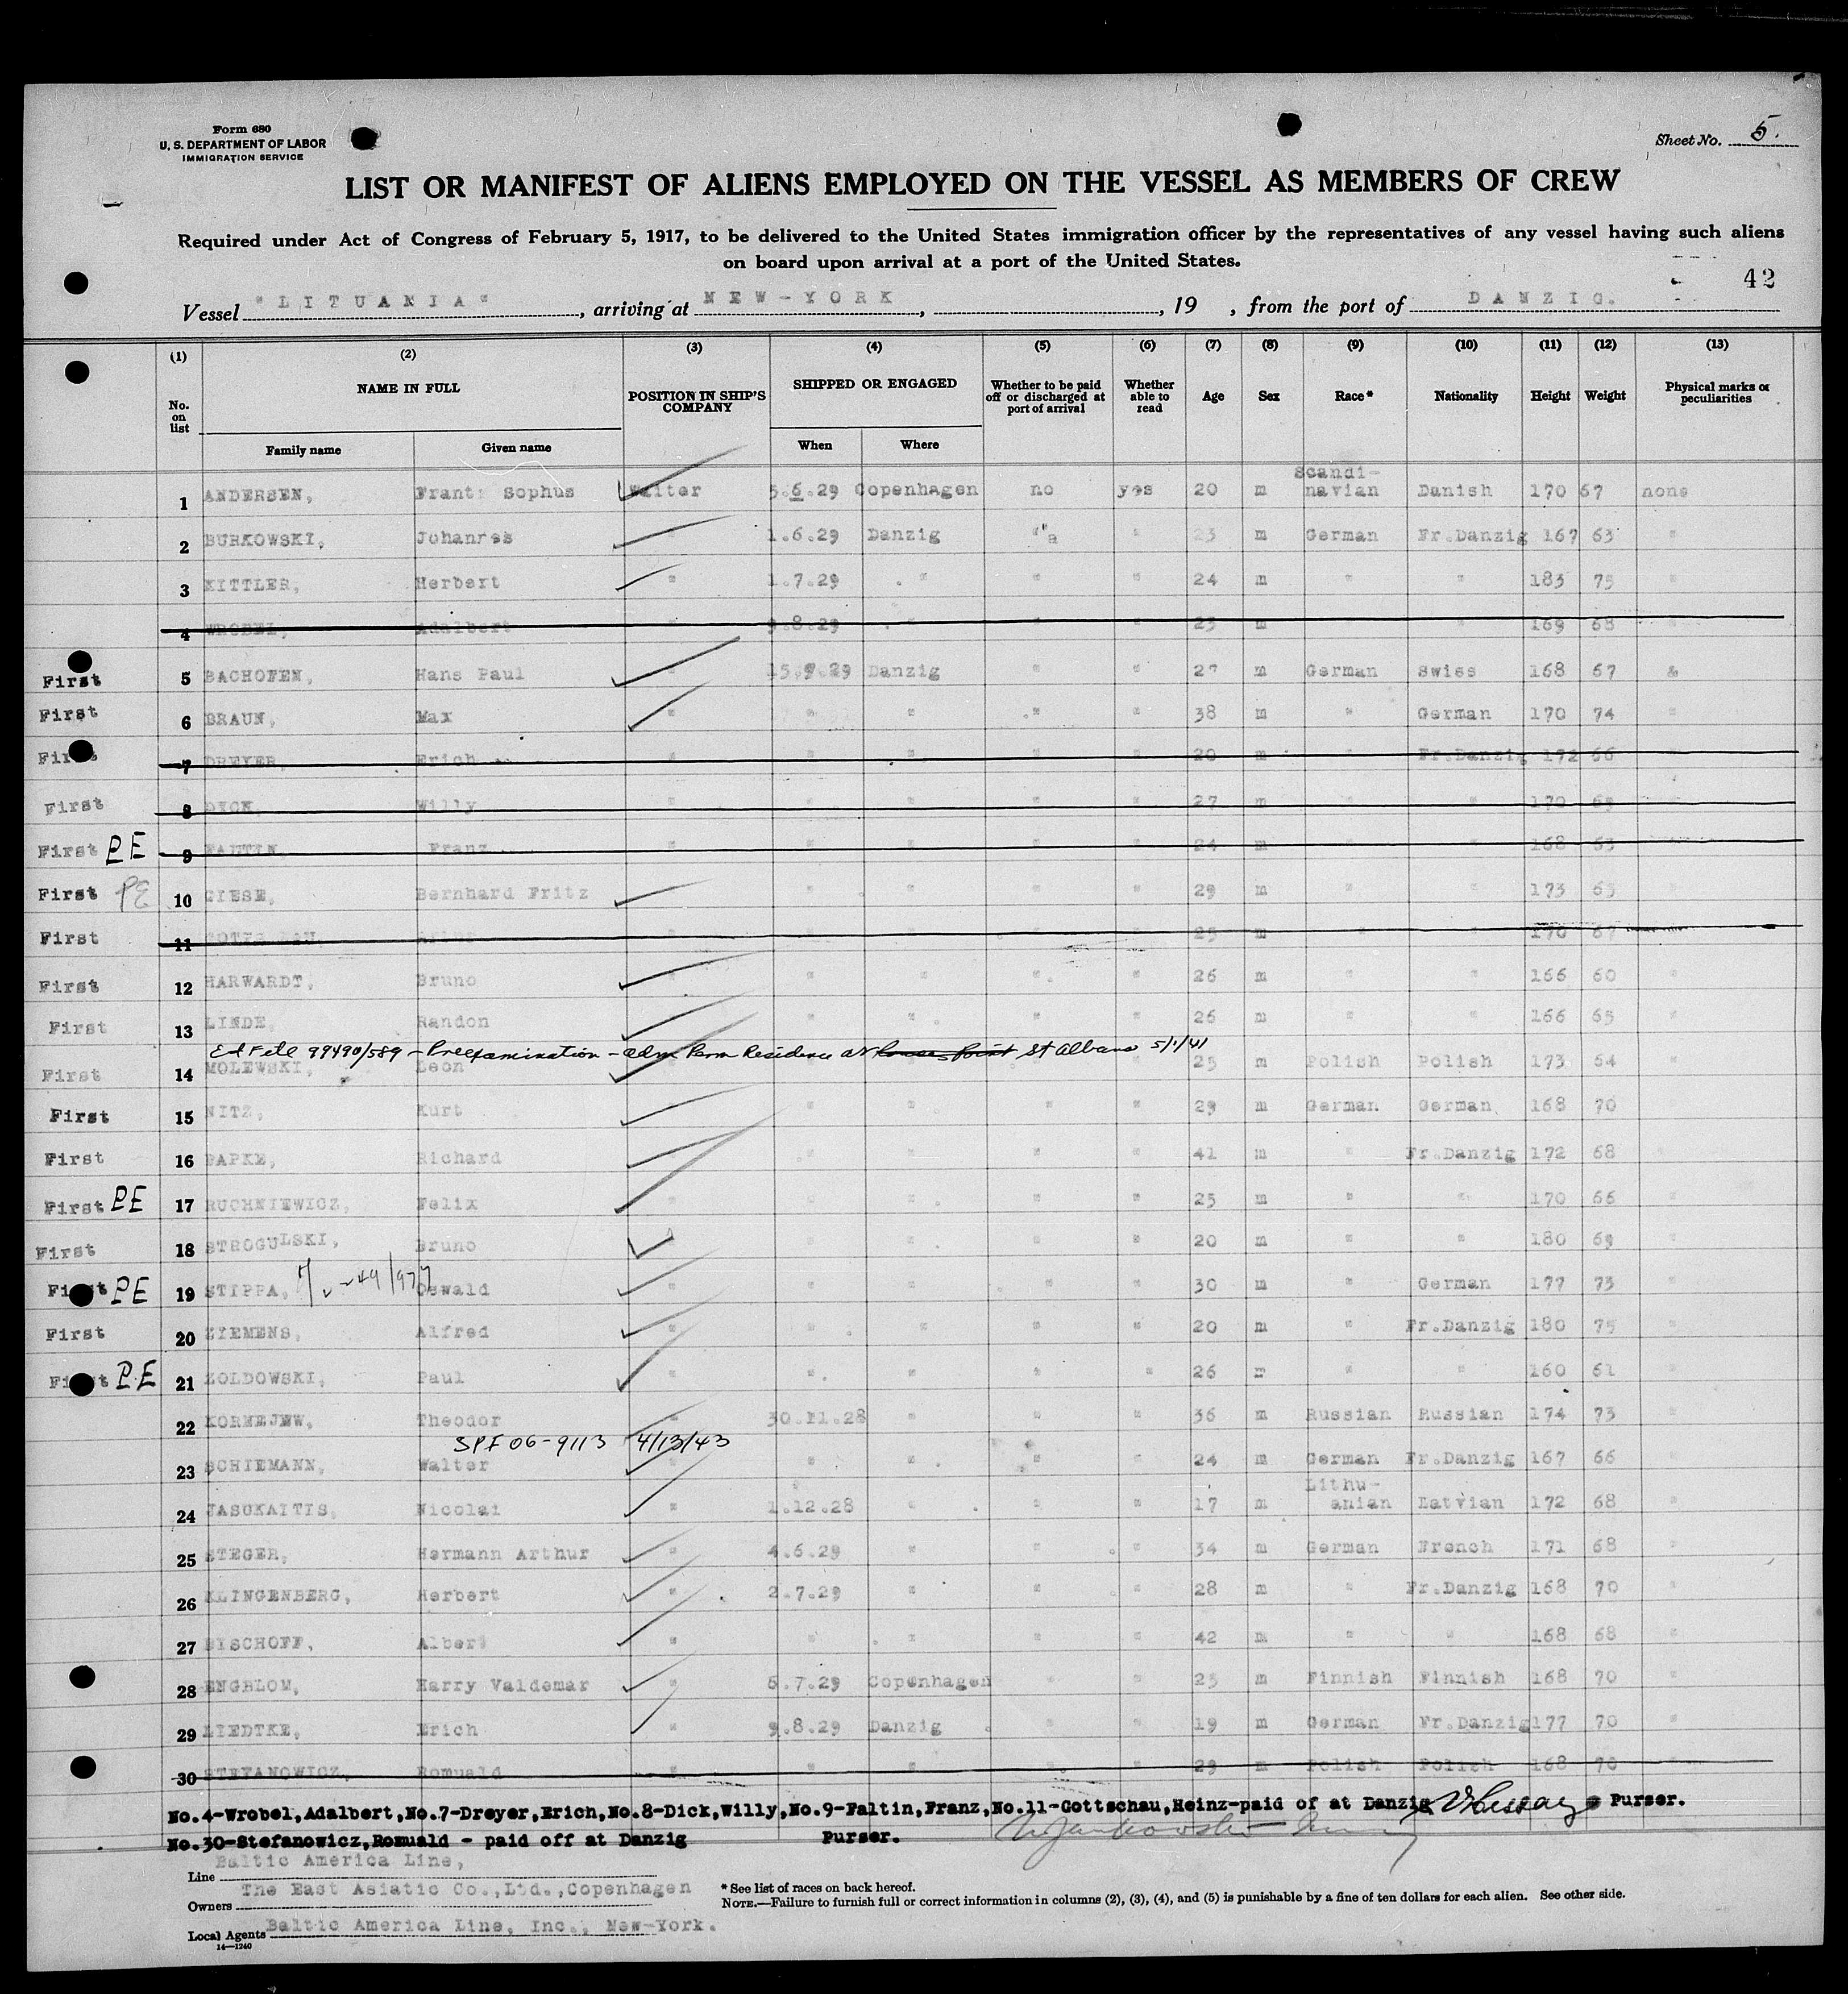 Form 680
U. S. DEPARTMENT OF LABOR
IMMIGRATION SERVICE
Sheet No. 5.
LIST OR MANIFEST OF ALIENS EMPLOYED ON THE VESSEL AS MEMBERS OF CREW
Required under Act of Congress of February 5, 1917, to be delivered to the United States immigration officer by the representatives of any vessel having such aliens
on board upon arrival at a port of the United States.
42
Vessel "LITUANIA", arriving at NEW-YORK, , 19 , from the port of DANZIG.
(1) (2) (3) (4) (5) (6) (7) (8) (9) (10) (11) (12) (13)
No. on list NAME IN FULL POSITION IN SHIP'S COMPANY SHIPPED OR ENGAGED Whether to be paid off or discharged at port of arrival Whether able to read Age Sex Race* Nationality Height Weight Physical marks or peculiarities
Family name Given name When Where
1 ANDERSEN, Frant: Sophus Waiter 5.6.29 Copenhagen no yes 20 m Scandi-navian Danish 170 67 none
2 BURKOWSKI, Johannes 1.6.29 Danzig " " 23 m German Fr.Danzig 167 63 "
3 KITTLER, Herbert " 1.7.29 " " " 24 m " " 183 75 "
4 WROBEL, Adalbert 9.8.29 " 23 m " " 169 68 "
First 5 BACHOFEN, Hans Paul 15.9.29 Danzig " " 27 m German Swiss 168 67 &
First 6 BRAUN, Max " " " " " 38 m " German 170 74 "
First 7 DREYER, Erich " " " " " 20 m " Fr.Danzig 172 66 "
First 8 DICK, Willy " " " " " 27 m " " 170 69 "
First PE 9 FALTIN, Franz " " " " " 24 m " " 168 63 "
First PE 10 GIESE, Bernhard Fritz " " " " 29 m " " 173 65 "
First 11 25 m " " 170 67
First 12 HARWARDT, Bruno " " " " " 26 m " " 166 60 "
First 13 LINDE, Randon " " " " 26 m " " 166 65 "
Ed File 99490/589 - Preexamination - adm Perm Residence at Rouses Point St Albans 5/1/41
First 14 MOLEWSKI, Leon 25 m Polish Polish 173 64 "
First 15 NITZ, Kurt " " " " 29 m German German 168 70 "
First 16 PAPKE, Richard " " " " 41 m " Fr.Danzig 172 68 "
First PE 17 RUCHNIEWICZ, Felix " " " " " 25 m " " 170 66 "
First 18 STROGULSKI, Bruno " " " " " 20 m " " 180 69 "
First PE 19 STIPPA, Oswald " " " " " 30 m " German 177 73 "
First 20 ZIEMENS, Alfred " " " " " 20 m " Fr.Danzig 180 75 "
First PE 21 ZOLDOWSKI, Paul " " " " " 26 m " " 160 61 "
22 KORNEJEW, Theodor " 30.11.28 " " " 36 m Russian Russian 174 73 "
SPF 06-9113 4/13/43
23 SCHIEMANN, Walter " " " " " 24 m German Fr.Danzig 167 66 "
24 JASUKAITIS, Nicolai " 1.12.28 " " " 17 m Lithu-anian Latvian 172 68 "
25 STEGER, Hermann Arthur " 4.6.29 " " " 34 m German French 171 68 "
26 KLINGENBERG, Herbert " 2.7.29 " " " 28 m " Fr.Danzig 168 70 "
27 BISCHOFF, Albert " " " " " 42 m " " 168 68 "
28 ENGBLOM, Harry Valdemar " 6.7.29 Copenhagen " " 23 m Finnish Finnish 168 70 "
29 LIEDTKE, Erich " 9.8.29 Danzig " " 19 m German Fr.Danzig 177 70 "
30 STEFANOWICZ, Romuald " " " " " 29 m Polish Polish 168 70 "
No.4-Wrobel,Adalbert,No.7-Dreyer,Erich,No.8-Dick,Willy,No.9-Faltin,Franz,No.11-Gottschau,Heinz-paid of at Danzig Purser.
No.30-Stefanowicz,Romuald - paid off at Danzig Purser.
Line Baltic America Line,
Owners The East Asiatic Co.,Ltd.,Copenhagen
Local Agents Baltic America Line, Inc., New-York.
14—1240
* See list of races on back hereof.
NOTE.—Failure to furnish full or correct information in columns (2), (3), (4), and (5) is punishable by a fine of ten dollars for each alien. See other side.